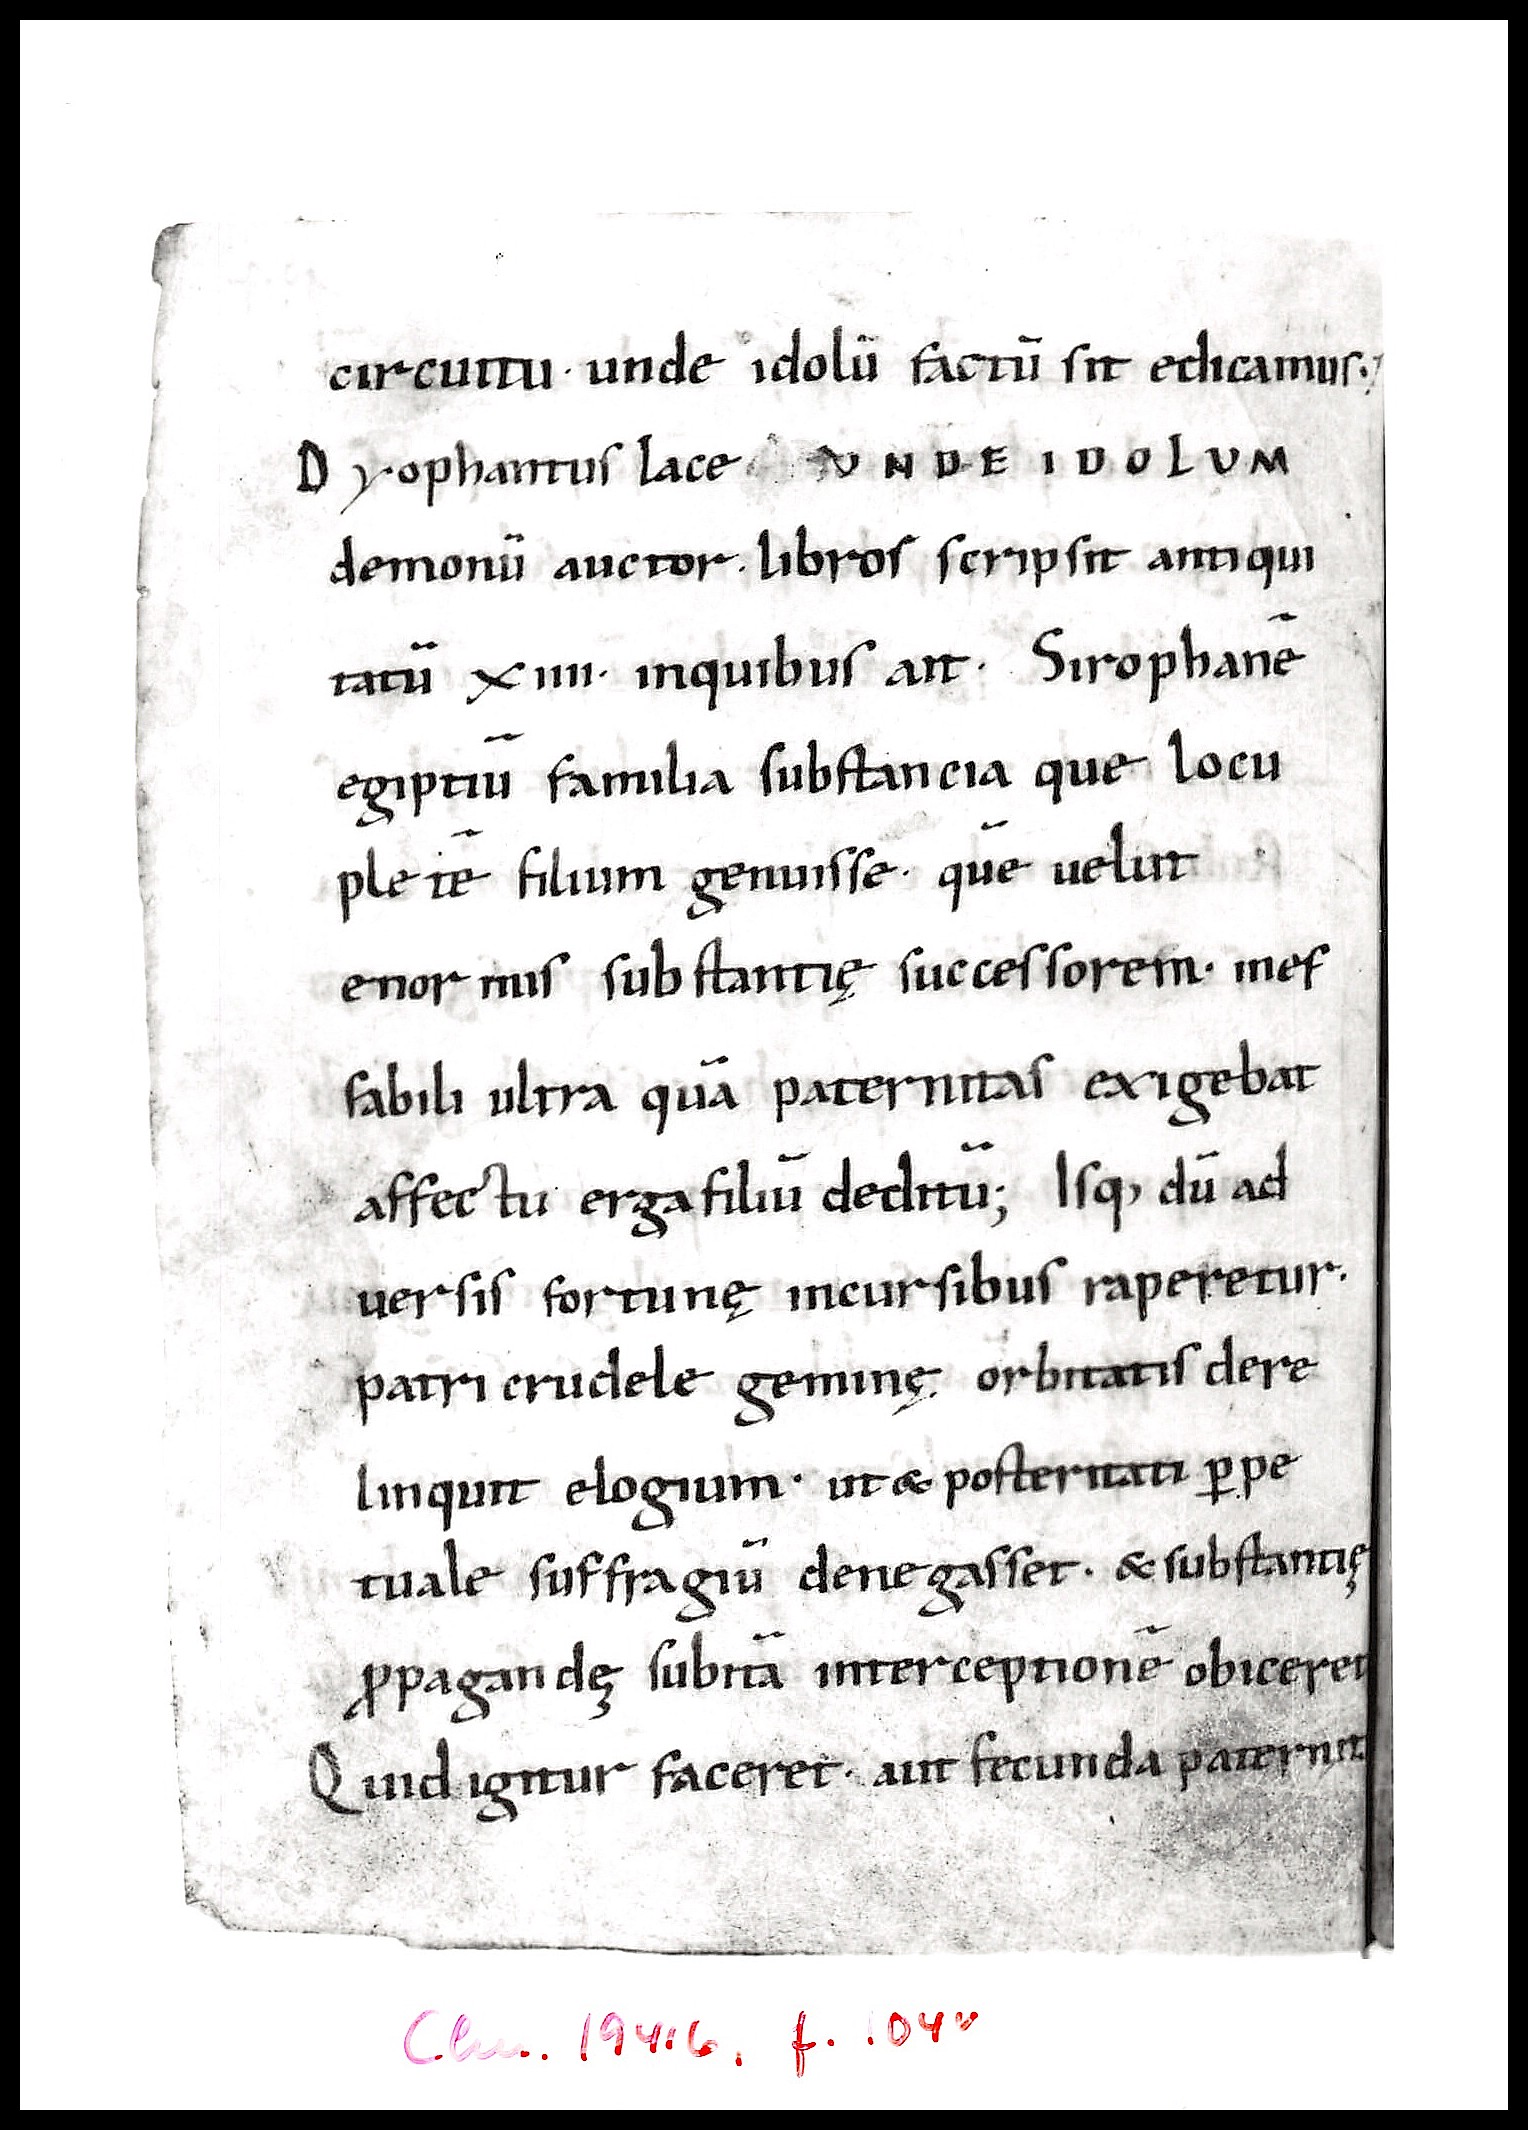 circuitu· unde idolū factū sit edicamus·,
Dyophantus lace UNDE IDOLUM
demonū auctor· libros scripsit antiqui
tatū XIIII· inquibus ait· Sirophanē
egiptiū familia substancia que locu
pletē filium genuisse· quē uelut
enormis substantię successorem· inef
fabili ultra quā paternitas exigebat
affectu erga filiū deditū; Isq, dū ad
uersis fortunę incursibus raperetur·
patri crudele geminę orbitatis dere
linquit elogium· ut & posteritati ꝑpe
tuale suffragiū denegasset· & substantię
ꝓpagandę subitā interceptionē obiceret
Quid igitur faceret· aut fecunda paternit
Clm. 19416. f. 104v